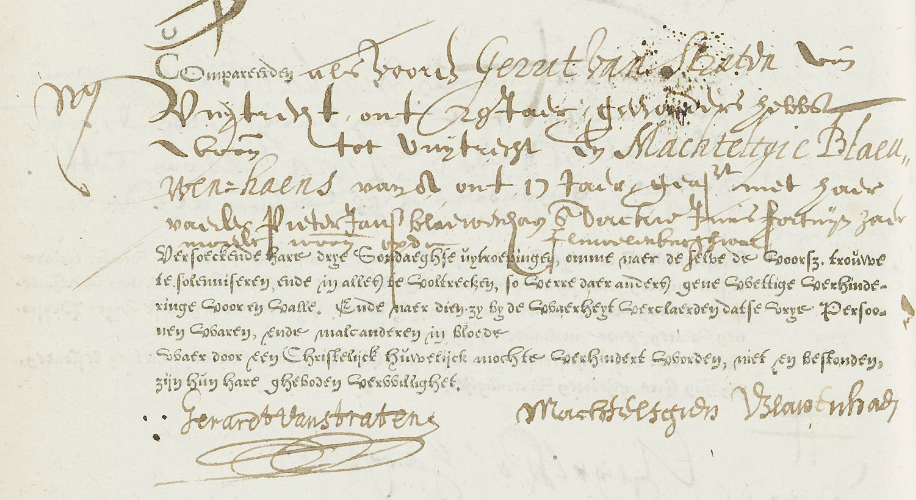 Comparerden als vooren Gerrit van Straten van
Uuytrecht, out 29 Jaer, geen ouders hebbende
woon tot Uuytrecht en Machteltgie Blaeu,,
wen=haens van A out 17 Jaer, geass.t met haer
vader Pieter Jans blaeuwenhaen
moeder
Versoeckende hare drye Sondaeghse uytroepingen, omme naer de selve de voorsz. trouwe
te solemniseren, ende in alles te voltrecken, so verre daer anders gene wettige verhinde-
ringe voor en valle. Ende naer dien zy by de waerheyt verclaerden datse vrye Persoo-
nen waren, ende malcanderen in bloede
waer door een Christelijck huwelijck mochte verhindert worden, niet en bestonden,
zijn hun hare gheboden verwillighet.
Gerardt van straten
Machtelsgien Blawenhaen